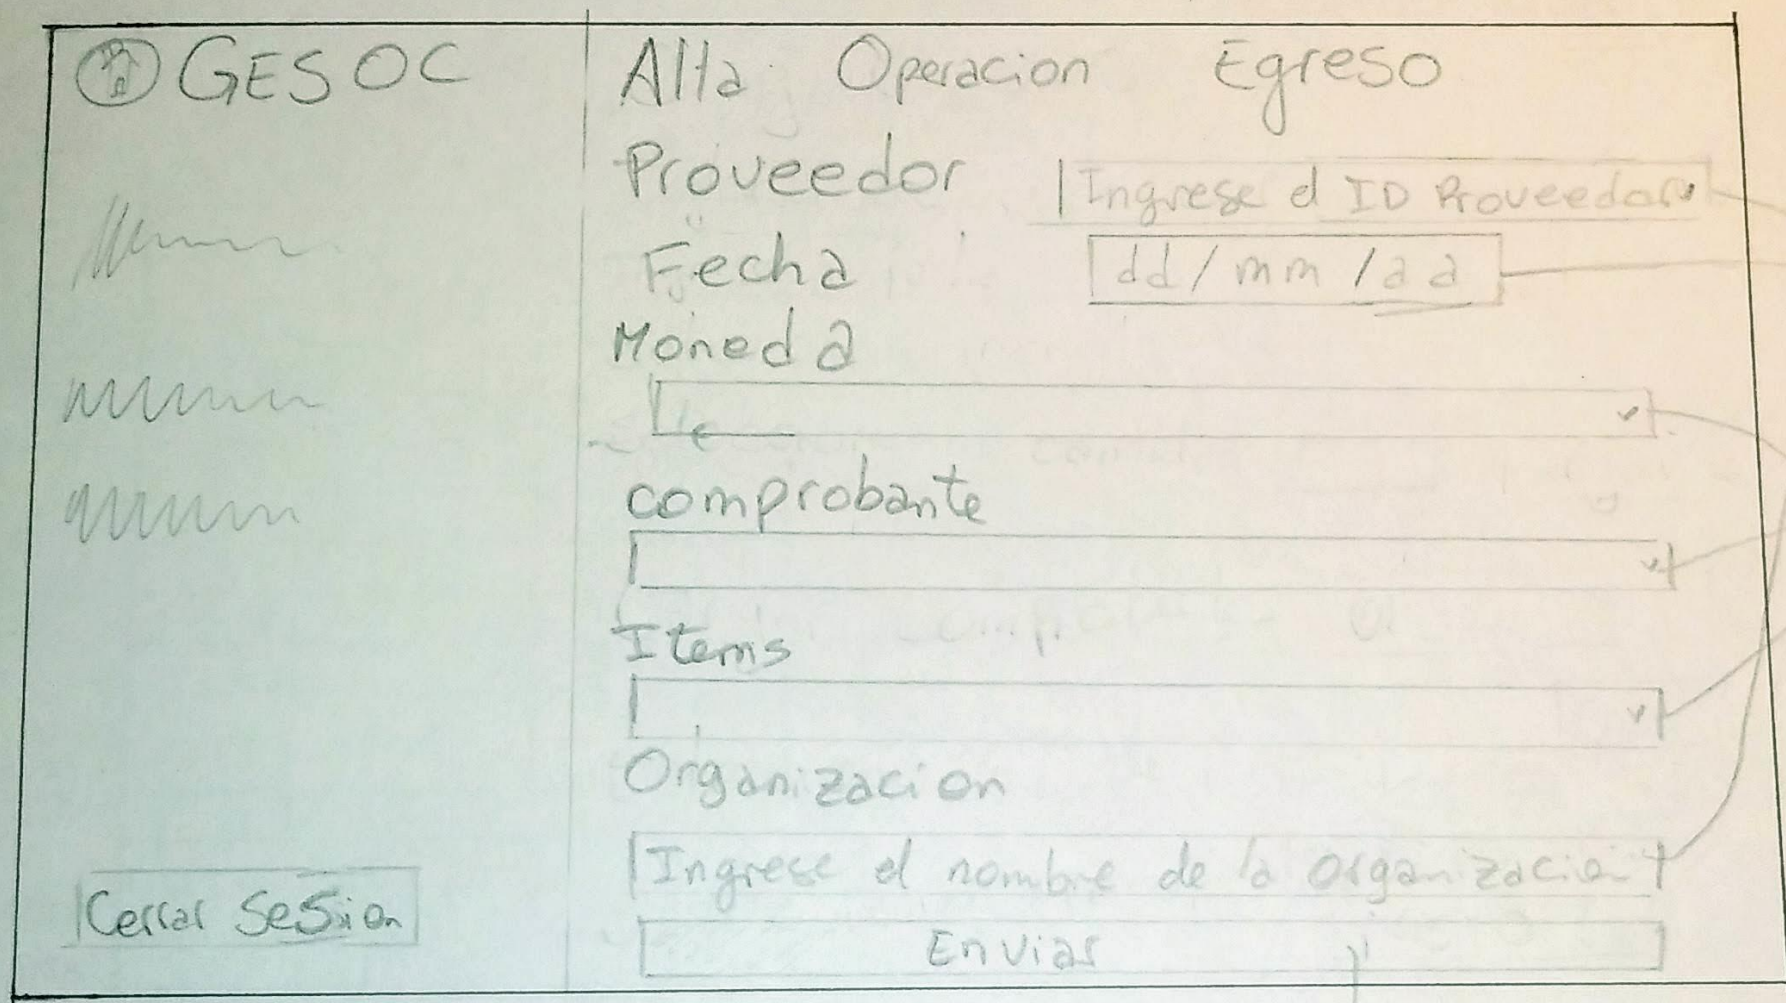 GESOC
Alta Operacion Egreso
Proveedor
Ingrese el ID Proveedor
Fecha
dd/mm/aa
Moneda
comprobante
Items
Organizacion
Ingrese el nombre de la organizacion
Enviar
Cerrar Sesion